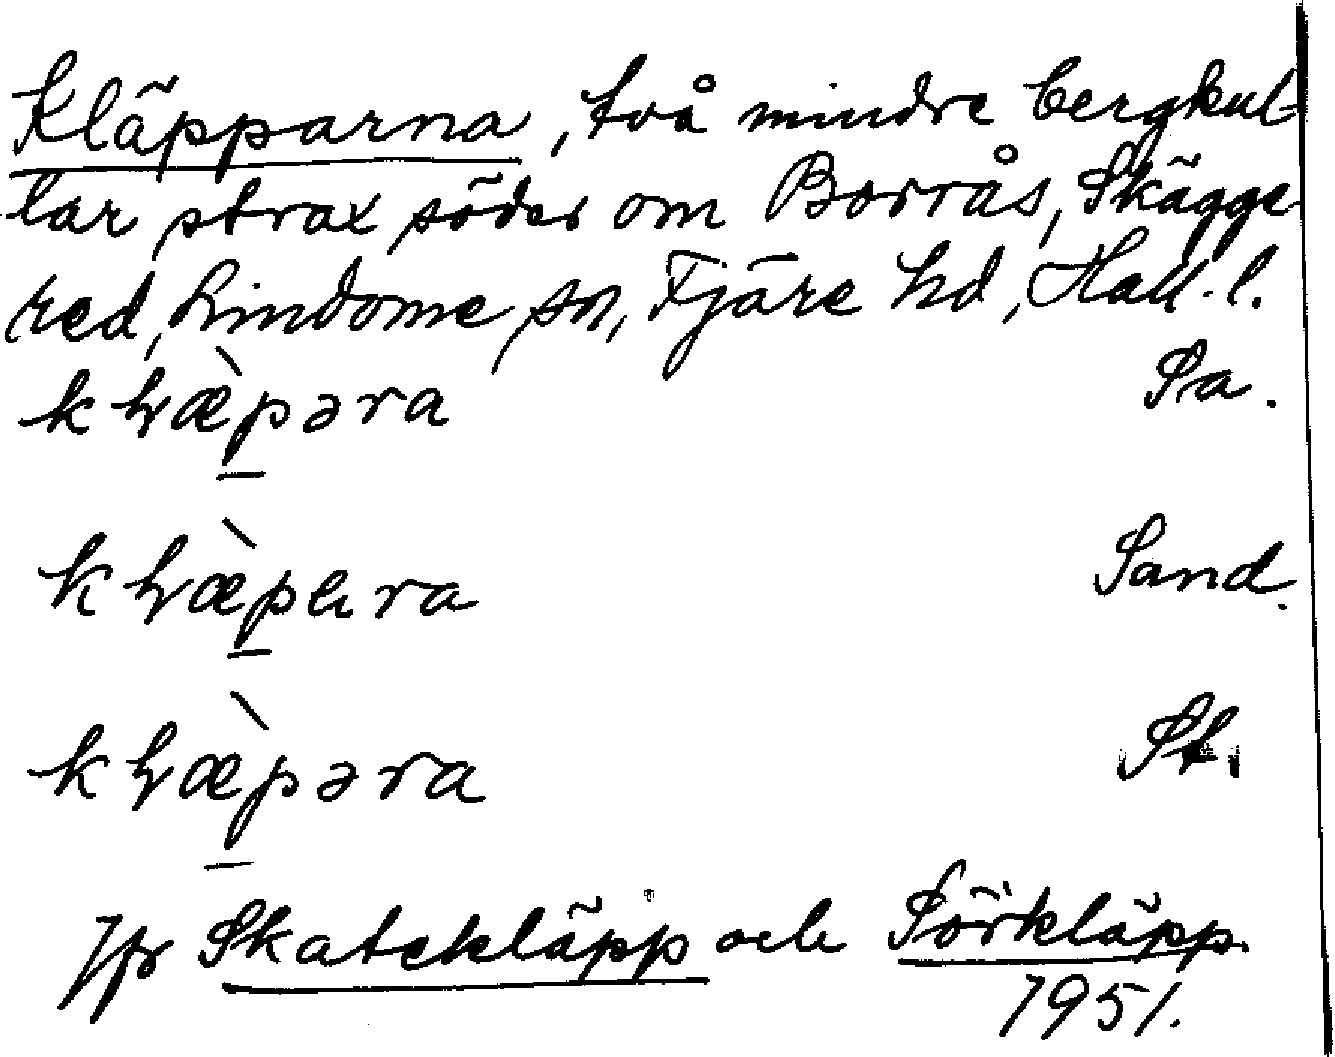 Kläpparna, två mindre bergkul-
lar strax söder om Borrås, Skägge-
red, Lindome sn, Fjäre hd, Hall. l.
Sa.
Sand.
St.
Jfr Skatekläpp och Sörkläpp.
1951.